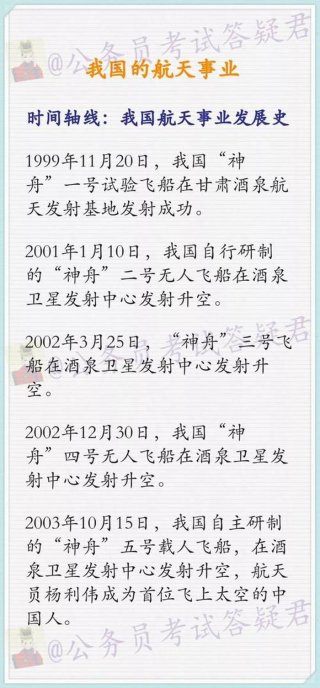 @公务员考试答疑君
我国的航天事业
时间轴线：我国航天事业发展史
1999年11月20日，我国“神
舟”一号试验飞船在甘肃酒泉航
天发射基地发射成功。
2001年1月10日，我国自行研制
的“神舟”二号无人飞船在酒泉
卫星发射中心发射升空。
2002年3月25日，“神舟”三号飞
船在酒泉卫星发射中心发射升
空。
@公务员考试答疑君
2002年12月30日，我国“神
舟”四号无人飞船在酒泉卫星发
射中心发射升空。
2003年10月15日，我国自主研制
的“神舟”五号载人飞船，在酒
泉卫星发射中心发射升空，航天
员杨利伟成为首位飞上太空的中
国人。
@公务员考试答疑君